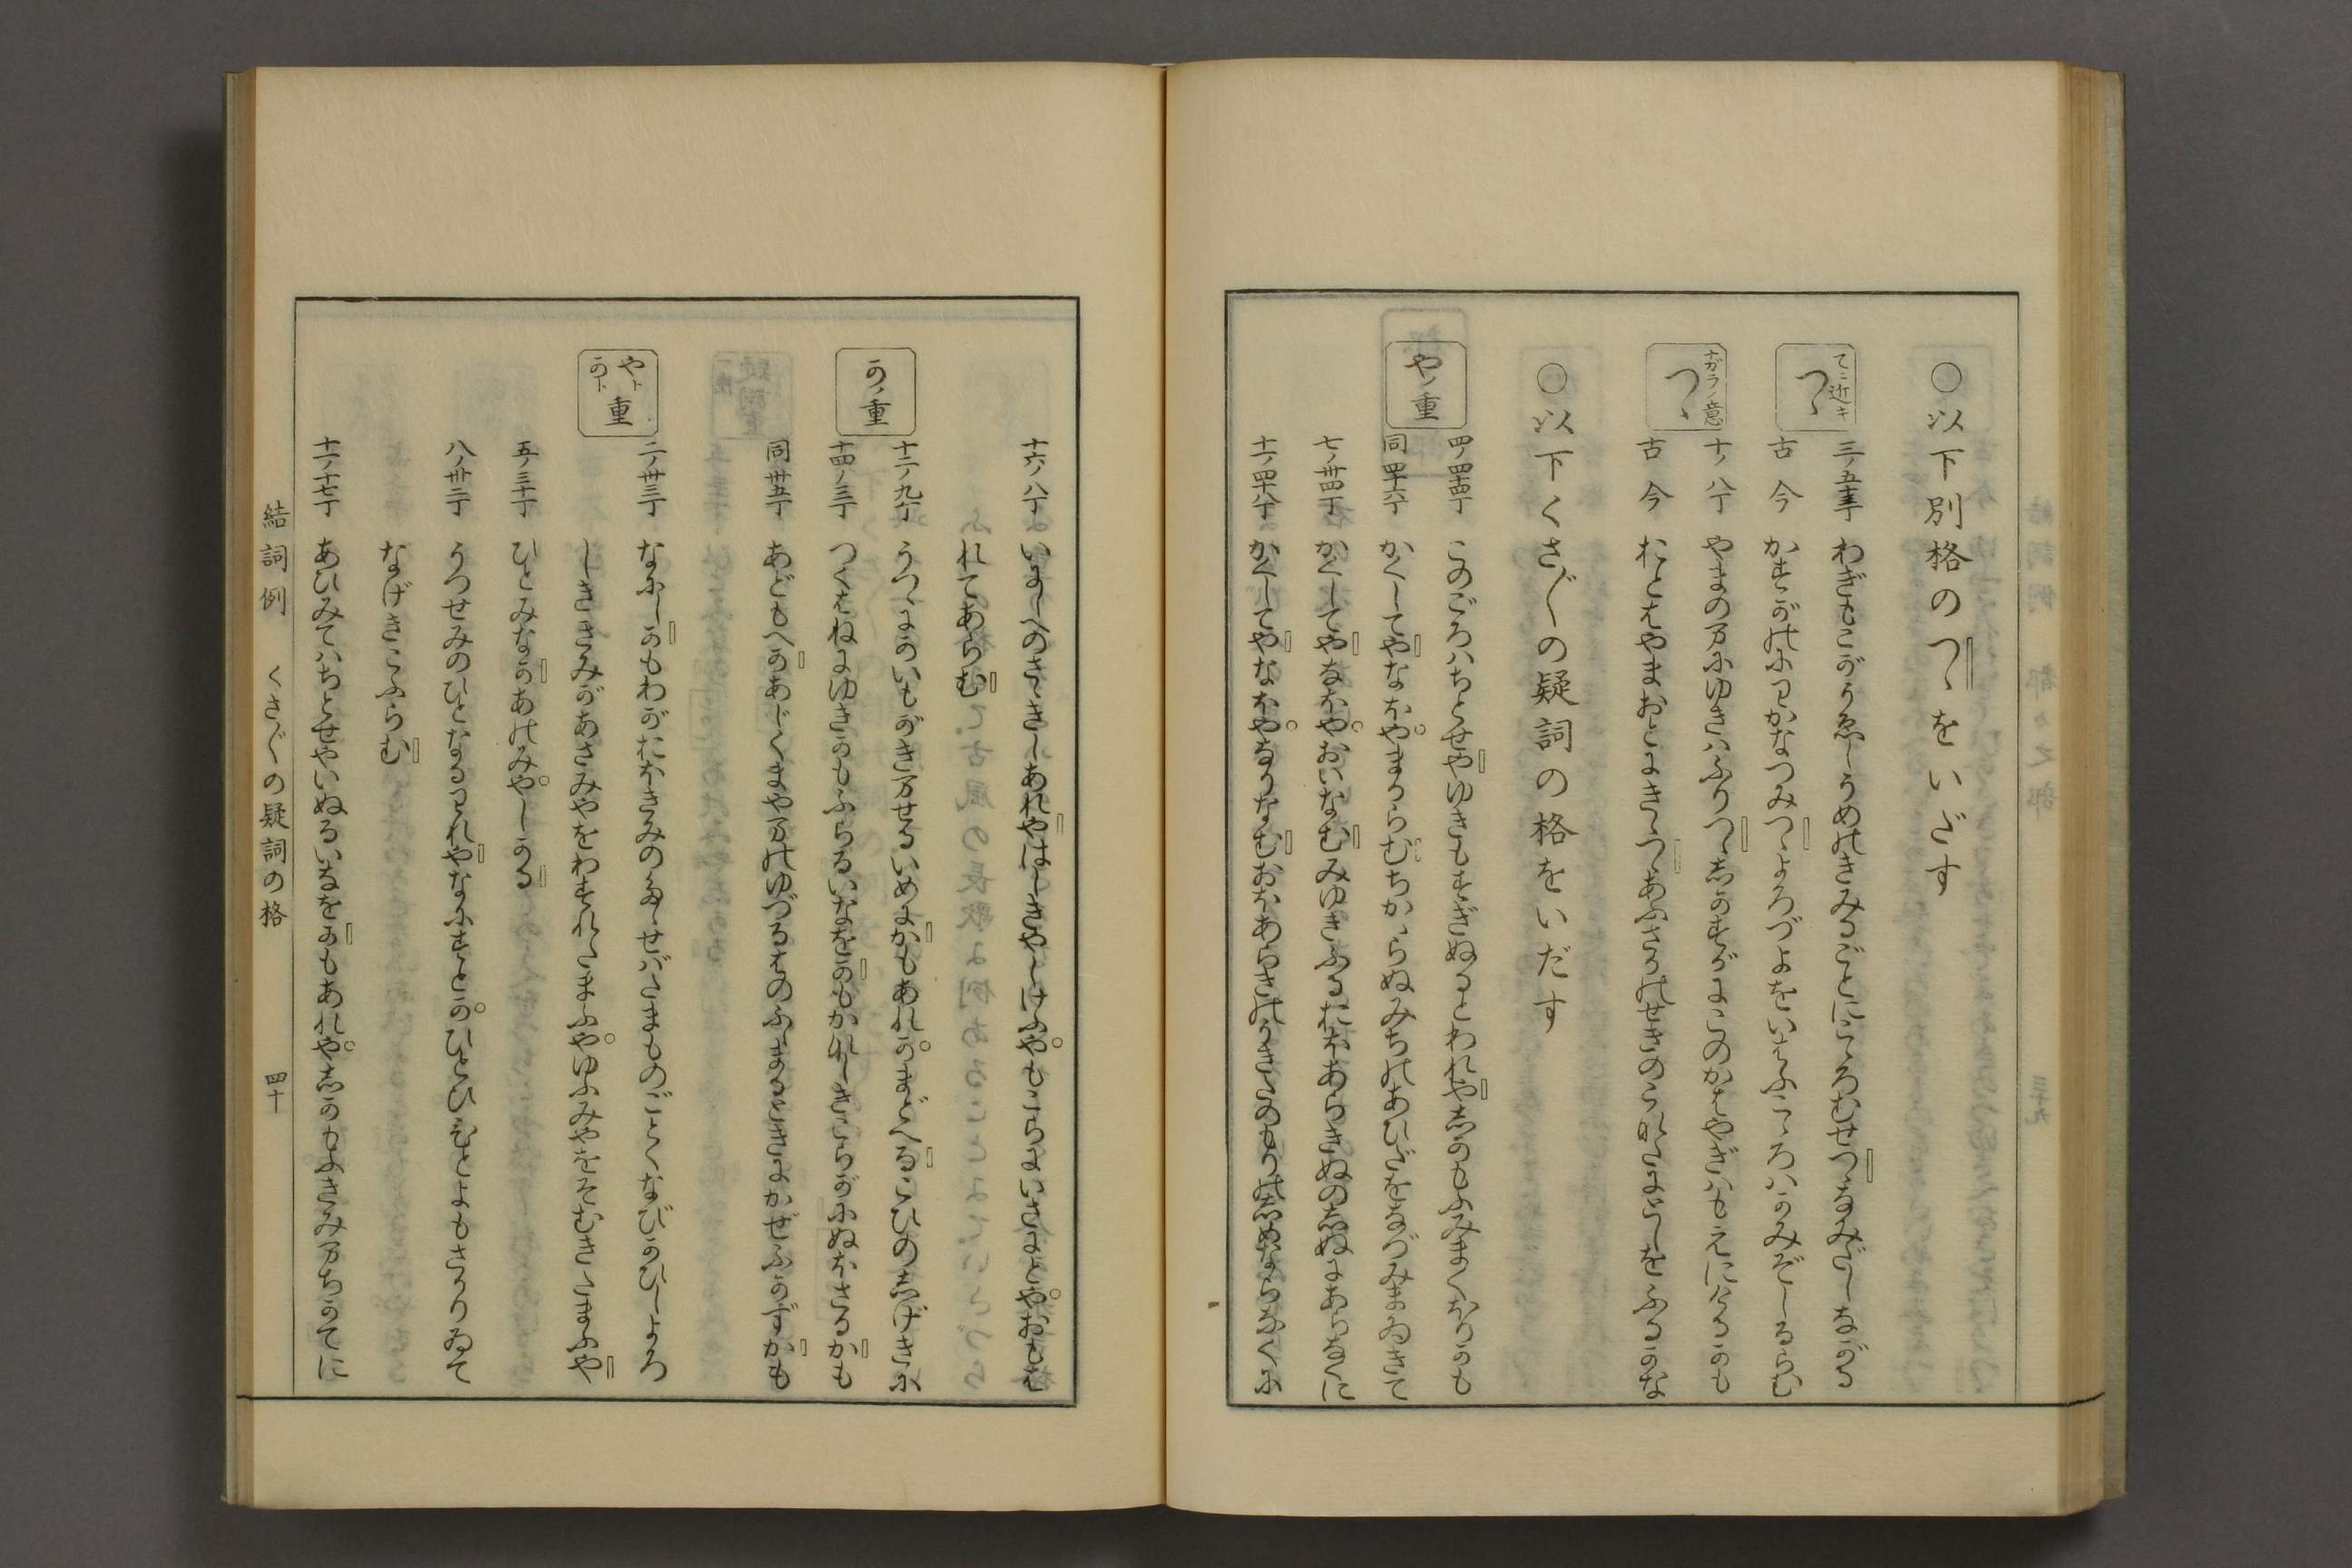 ○以下別格のつゝをいだす
てニ近キ
つゝ
三ノ五十三丁 わぎもこがうゑしうめのきみるごとにこゝろむせつゝなみだしながる
古今 かすがのにわかなつみつゝよろづよをいはふこゝろはかみぞしるらむ
ナガラノ意
つゝ
十ノ八丁 やまのまにゆきはふりつゝしかすがにこのかはやぎはもえにけるかも
古今 おとはやまおとにきゝつゝあふさかのせきのこなたにとしをふるかな
○以下くさ〴〵の疑詞の格をいだす
やノ重
四ノ四十四丁 このごろはちとせやゆきもすぎぬるとわれやしかもふみまくほりかも
同四十六丁 かくしてやなほやまからむちかゝらぬみちのあひだをなづみまゐきて
七ノ卅四丁 かくしてやなほやおいなむみゆきふるおほあらきぬのしぬにあらなくに
十一ノ四十八丁 かくしてやなほやなりなむおほあらきのうきたのもりのしめならなくに
十六ノ八丁 いにしへのさゝきしあれやはしきやしけふやもこらにいさにとやおもは
れてあらむ
かノ重
十二ノ九丁 うつゝにかいもがきませるいめにかもあれかまどへるこひのしげきに
十四ノ三丁 つくはねにゆきかもふらるいなをかもかなしきころがにぬほさるかも
同卅五丁 あどもへかあじくまやまのゆづるはのふゝまるときにかぜふかずかも
やトかト重
二ノ卅三丁 なにしかもわがおほきみのたゝせばたまものごとくなびかひしよろ
しききみがあさみやをわすれたまふやゆふみやをそむきたまふや
五ノ三十丁 ひとみなかあのみやしかる
八ノ卅二丁 うつせみのひとなるわれやなにすとかひとひひとよもさかりゐて
なげきこふらむ
十一ノ十七丁 あひみてはちとせやいぬるいなをかもあれやしかもふきみまちかてに
結詞例 くさ〴〵の疑詞の格 四十